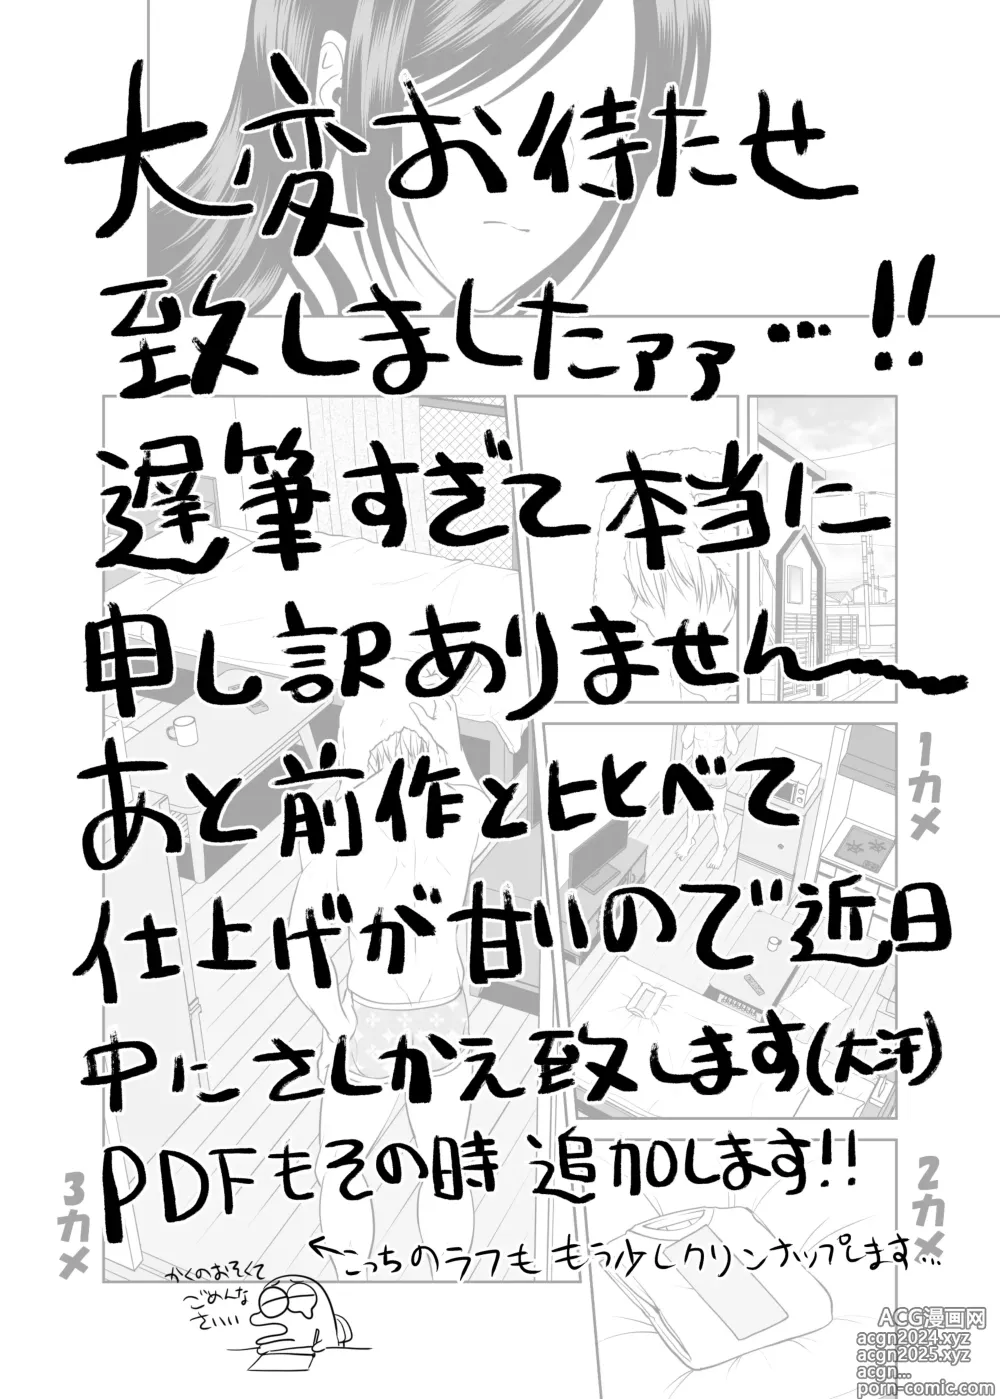 大変お待たせ
致しましたァァ…!!
遅筆すぎて本当に
申し訳ありません〜
あと前作と比べて
仕上げが甘いので近日
中にさしかえ致します(大汗)
PDFもその時追加します!!
←こっちのラフももう少しクリンナップします…
かくのおそくて
ごめんな
さいいい
1カメ
2カメ
3カメ
ACG漫画网
acgn2024.xyz
acgn2025.xyz
acgn...
porn-comic.com